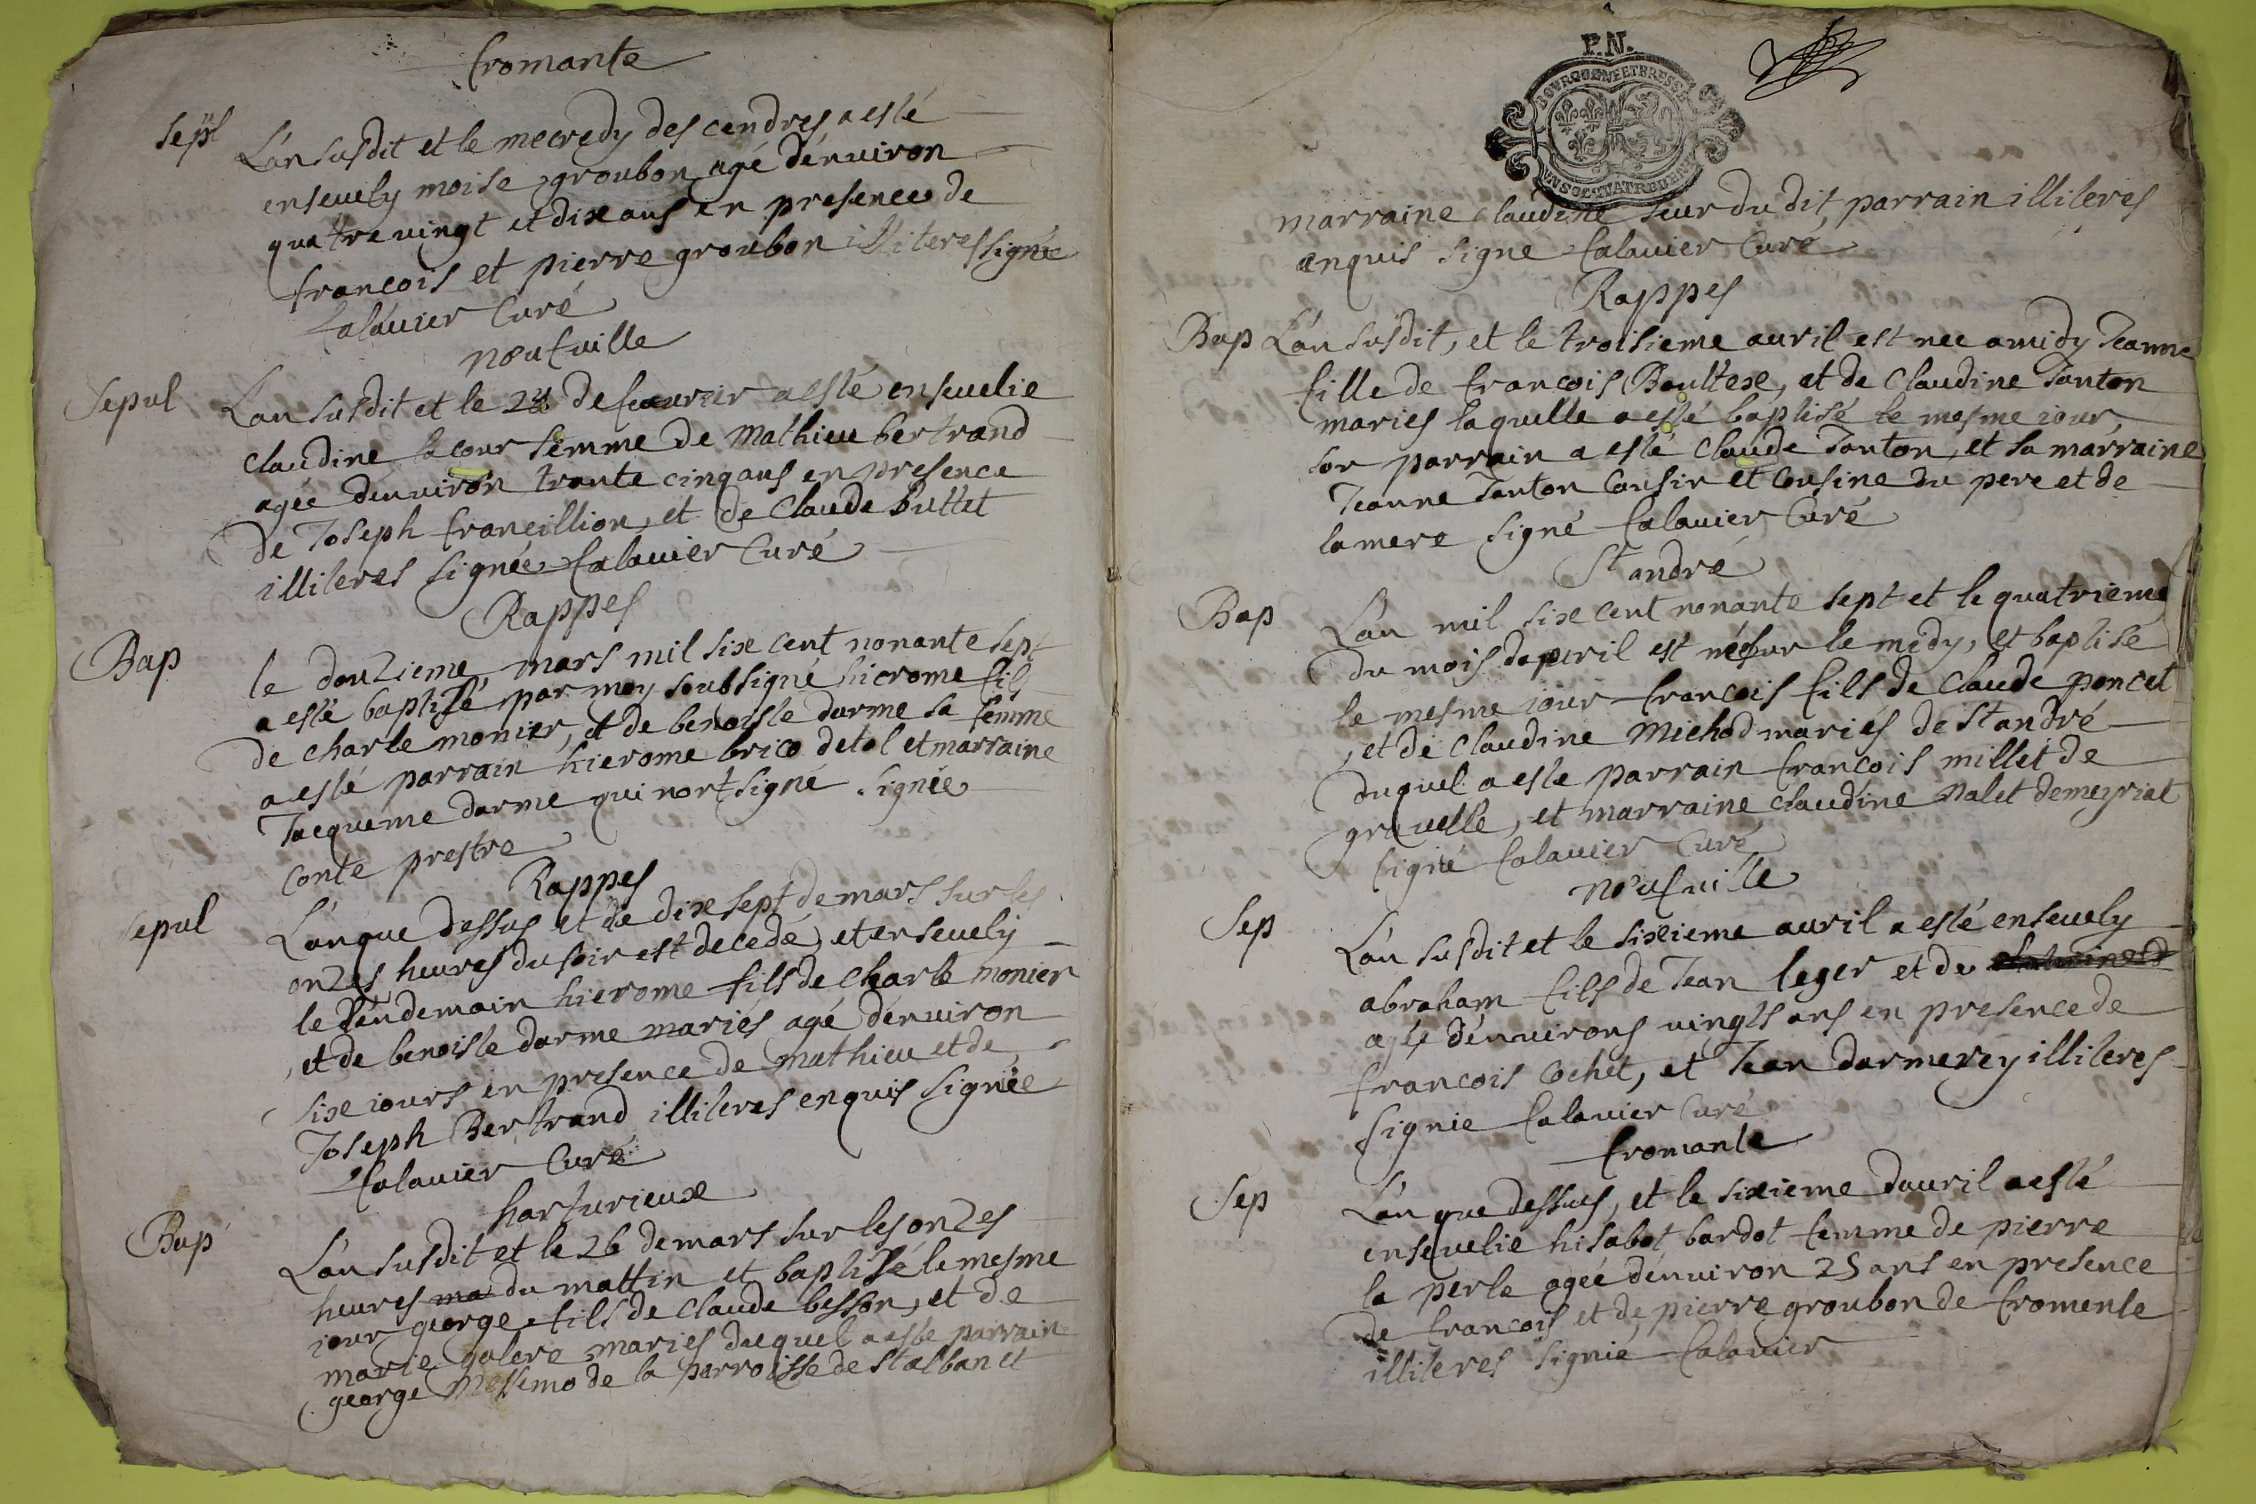 fromante
Sepl L'an susdit et le mecredy des cendres a esté
ensevely moise groubon agé d'enuiron
quatrevingt et dix ans en presence de
francois et pierre groubon illiteres signée
Calauier Curé
neufuille
Sepul L'an susdit et le de feurier a esté enseuelie
claudine la cour femme de Mathieu bertrand
agée denuiron trante cinq ans en presence
de Joseph francillion, et de Claude Buttet
illiteres signée Calauier Curé
Rappes
Bap le douzieme mars mil six cent nonante sept
a esté baptizé par moy soubsigné hierome fils
de charle monier, et de benoiste darme sa femme
a esté parrain hierome brico detol et marraine
Jacqueme darme qui n'ont signé signée
Conte prestre
Rappes
Sepul L'an que dessus et le dix sept de mars sur les
onzes heures du soir est decedé, et enseuely
le lendemain hierome fils de charle monier
et de benoiste darme mariés agé d'enuiron
six iours en presence de mathieu et de
Joseph Bertrand illiteres enquis signée
Calauier Curé
harturieux
Bap L'an susdit et le 26 de mars sur les onzes
heures ma du mattin et baptizé le mesme
iour george fils de claude besson, et de
marie galere mariés duquel a esté parrain
george de la parroisse de st alban et
P.N.
BOURGOGNE ET BRESSE
marraine claudine seur du dit parrain illiteres
enquis signé Calauier Curé
Rappes
Bap L'an susdit, et le troisieme auril est nee a midy Jeanne
fille de francois Boultexe, et de Claudine Tanton
mariés laquelle a esté baptisé le mesme iour,
son parrain a esté Claude Tanton, et sa marraine
Jeanne Tanton Cousin et Cousine du pere et de
la mere signé Calauier Curé
St andré
Bap L'an mil six cent nonante sept et le quatrieme
du mois d'apuril est né sur le midy, et baptisé
le mesme iour francois fils de Claude poncet
, et de Claudine Michod mariés de St andré
duquel a esté parrain francois millet de
gravelle, et marraine claudine Nalet de meyriat
signé Calauier Curé
neufuille
Sep L'an susdit et le sixieme auril a esté enseuely
abraham fils de Jean leger et de
agé d'enuirons vingts ans en presence de
francois Cochet, et Jean darmerey illiteres
signie Calauier Curé
fromante
Sep L'an que dessus, et le sixieme d'auril a esté
enseuelie hisabot bardot femme de pierre
la perle agée d'enuiron 25 ans en presence
de francois et de pierre groubon de fromente
illiteres signié Calauier